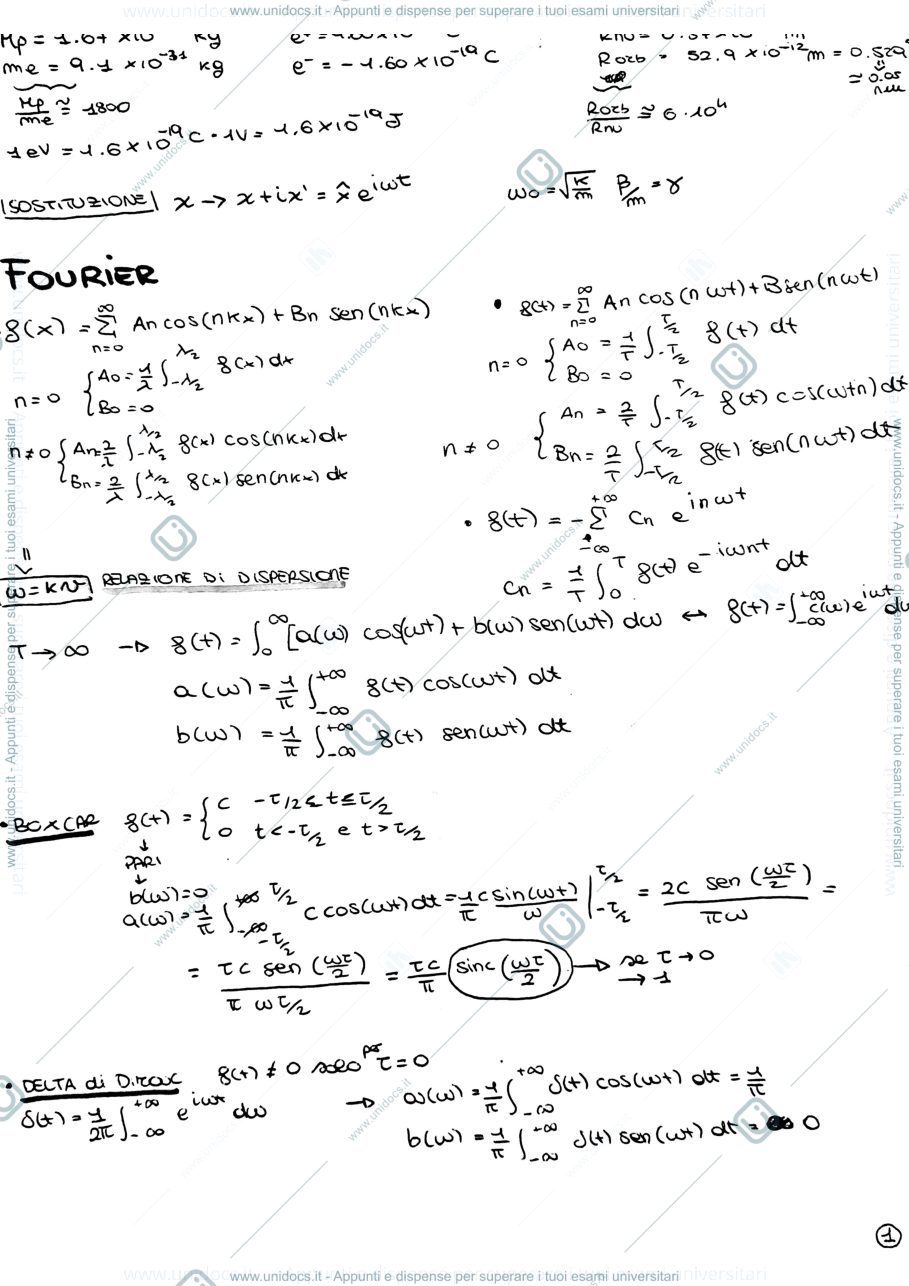 www.unidocs.it - Appunti e dispense per superare i tuoi esami universitari
Mp = 1.67 x10 kg
me = 9.1 x10^-31 kg
e^- = -1.60 x10^-19 C
Rorb = 52.9 x10^-12 m = 0.529
≈ 0.05
Mp/me ≈ 1800
Rorb/Rnu ≅ 6·10^4
1eV = 1.6 x 10^-19 C · 1V = 1,6 x 10^-19 J
SOSTITUZIONE x → x + ix' = x̂ e^{iωt}
ω0 = √(K/m) β/m = γ
FOURIER
f(x) = Σ_{n=0}^{∞} An cos(nkx) + Bn sen(nkx)
n=0 { A0 = 1/λ ∫_{-λ/2}^{λ/2} f(x) dx
B0 = 0
n≠0 { An = 2/λ ∫_{-λ/2}^{λ/2} f(x) cos(nkx) dx
Bn = 2/λ ∫_{-λ/2}^{λ/2} f(x) sen(nkx) dx
• f(t) = Σ_{n=0}^{∞} An cos(nωt) + B sen(nωt)
n=0 { A0 = 1/T ∫_{-T/2}^{T/2} f(t) dt
B0 = 0
n≠0 { An = 2/T ∫_{-T/2}^{T/2} f(t) cos(ωtn) dt
Bn = 2/T ∫_{-T/2}^{T/2} f(t) sen(nωt) dt
• f(t) = - Σ_{-∞}^{+∞} Cn e^{inωt}
Cn = 1/T ∫_0^T f(t) e^{-iωnt} dt
ω = kv RELAZIONE Di DISPERSIONE
T → ∞ → f(t) = ∫_0^∞ [a(ω) cos(ωt) + b(ω) sen(ωt) dω ↔ f(t) = ∫_{-∞}^{+∞} c(ω) e^{iωt} dω
a(ω) = 1/π ∫_{-∞}^{+∞} f(t) cos(ωt) dt
b(ω) = 1/π ∫_{-∞}^{+∞} f(t) sen(ωt) dt
• BOXCAR f(t) = { C -τ/2 ≤ t ≤ τ/2
0 t < -τ/2 e t > τ/2
↓
PARI
↓
b(ω) = 0
a(ω) = 1/π ∫_{-τ/2}^{τ/2} c cos(ωt) dt = 1/π c sin(ωt)/ω |_{-τ/2}^{τ/2} = 2C sen(ωτ/2)/πω =
= τc sen(ωτ/2)/(π ωτ/2) = τc/π sinc(ωτ/2) → se τ → 0
→ 1
• DELTA di Dirac f(t) ≠ 0 solo per τ = 0
δ(t) = 1/2π ∫_{-∞}^{+∞} e^{iωt} dω → a(ω) = 1/π ∫_{-∞}^{+∞} δ(t) cos(ωt) dt = 1/π
b(ω) = 1/π ∫_{-∞}^{+∞} δ(t) sen(ωt) dt = 0
1
www.unidocs.it - Appunti e dispense per superare i tuoi esami universitari